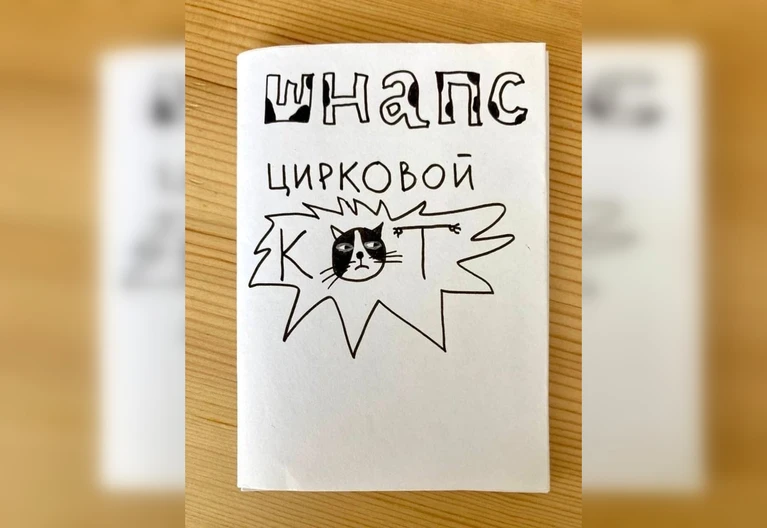 шнапс
цирковой
кот